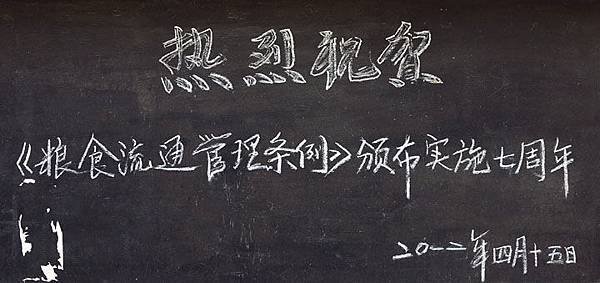 热烈祝贺
《粮食流通管理条例》颁布实施七周年
20一二年四月十五日